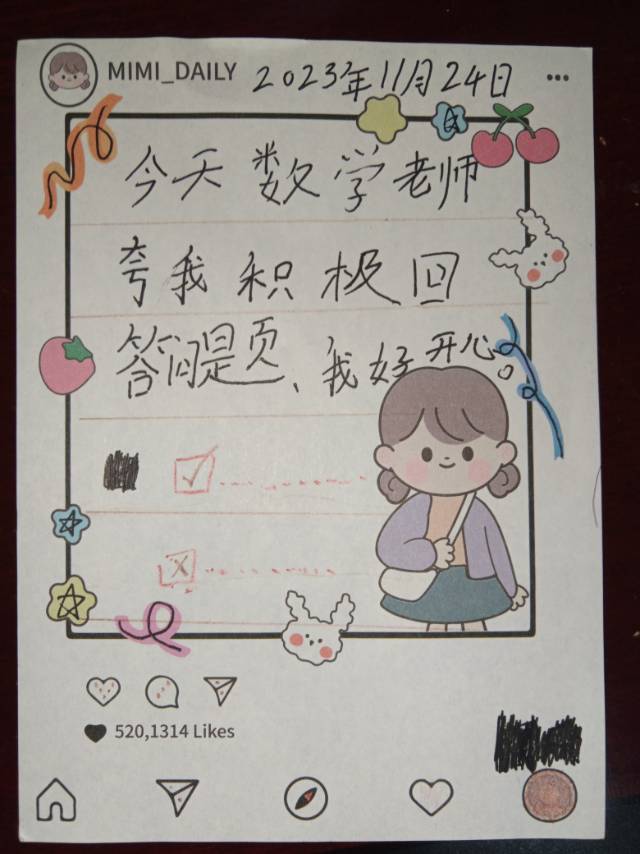 MIMI_DAILY 2023年11月24日
今天数学老师
夸我积极回
答问题、我好开心。
520,1314 Likes